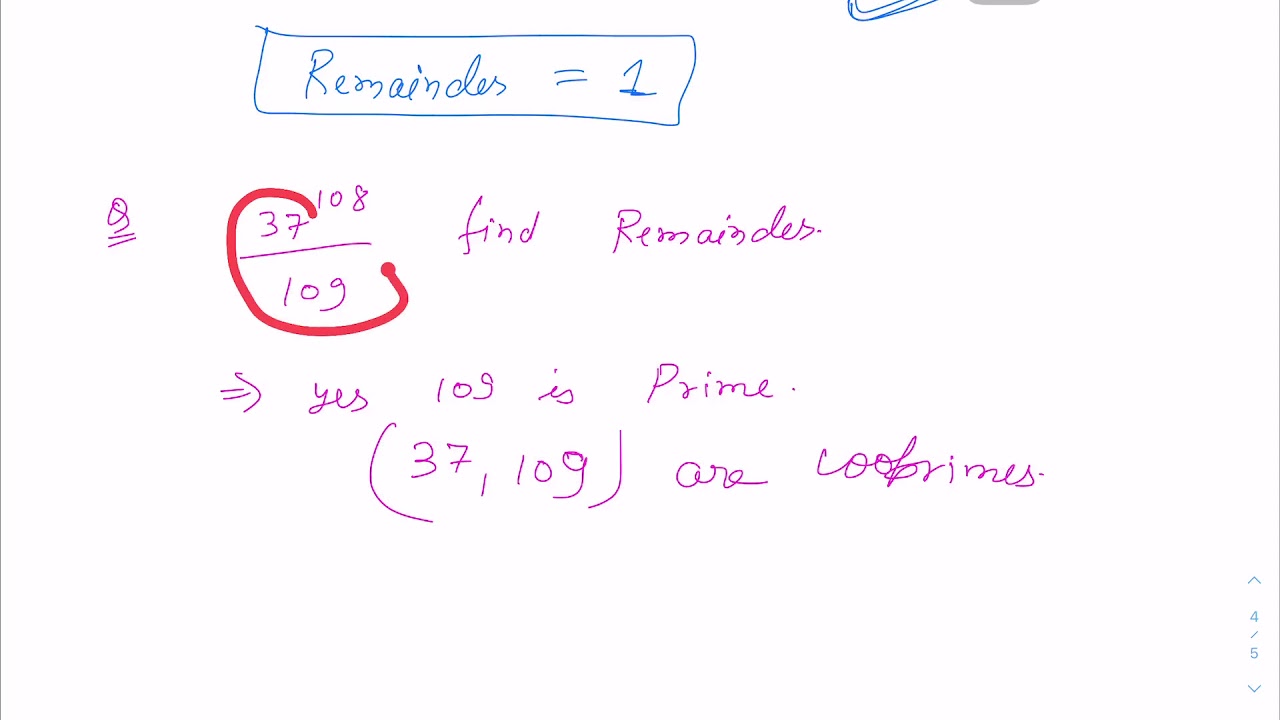 Remainder = 1
Q 37^108 / 109 find Remainder.
⇒ yes 109 is Prime.
(37, 109) are cooprimes.
4
/
5